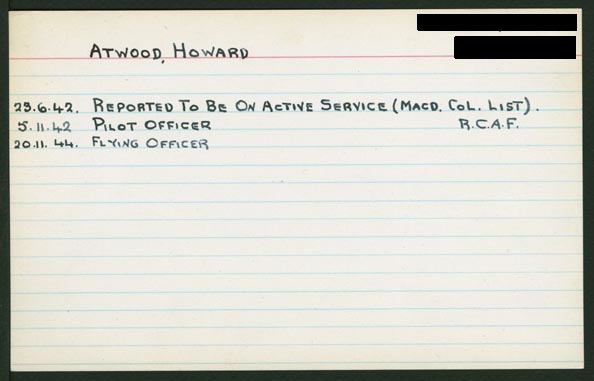 ATWOOD, HOWARD
23.6.42. REPORTED TO BE ON ACTIVE SERVICE (MACD. COL. LIST).
5.11.42 PILOT OFFICER R.C.A.F.
20.11.44. FLYING OFFICER